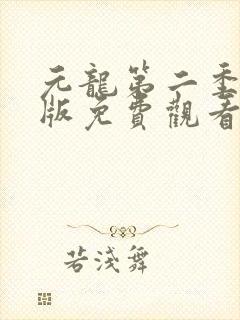 元龍第二季
版免費觀看
若淺舞